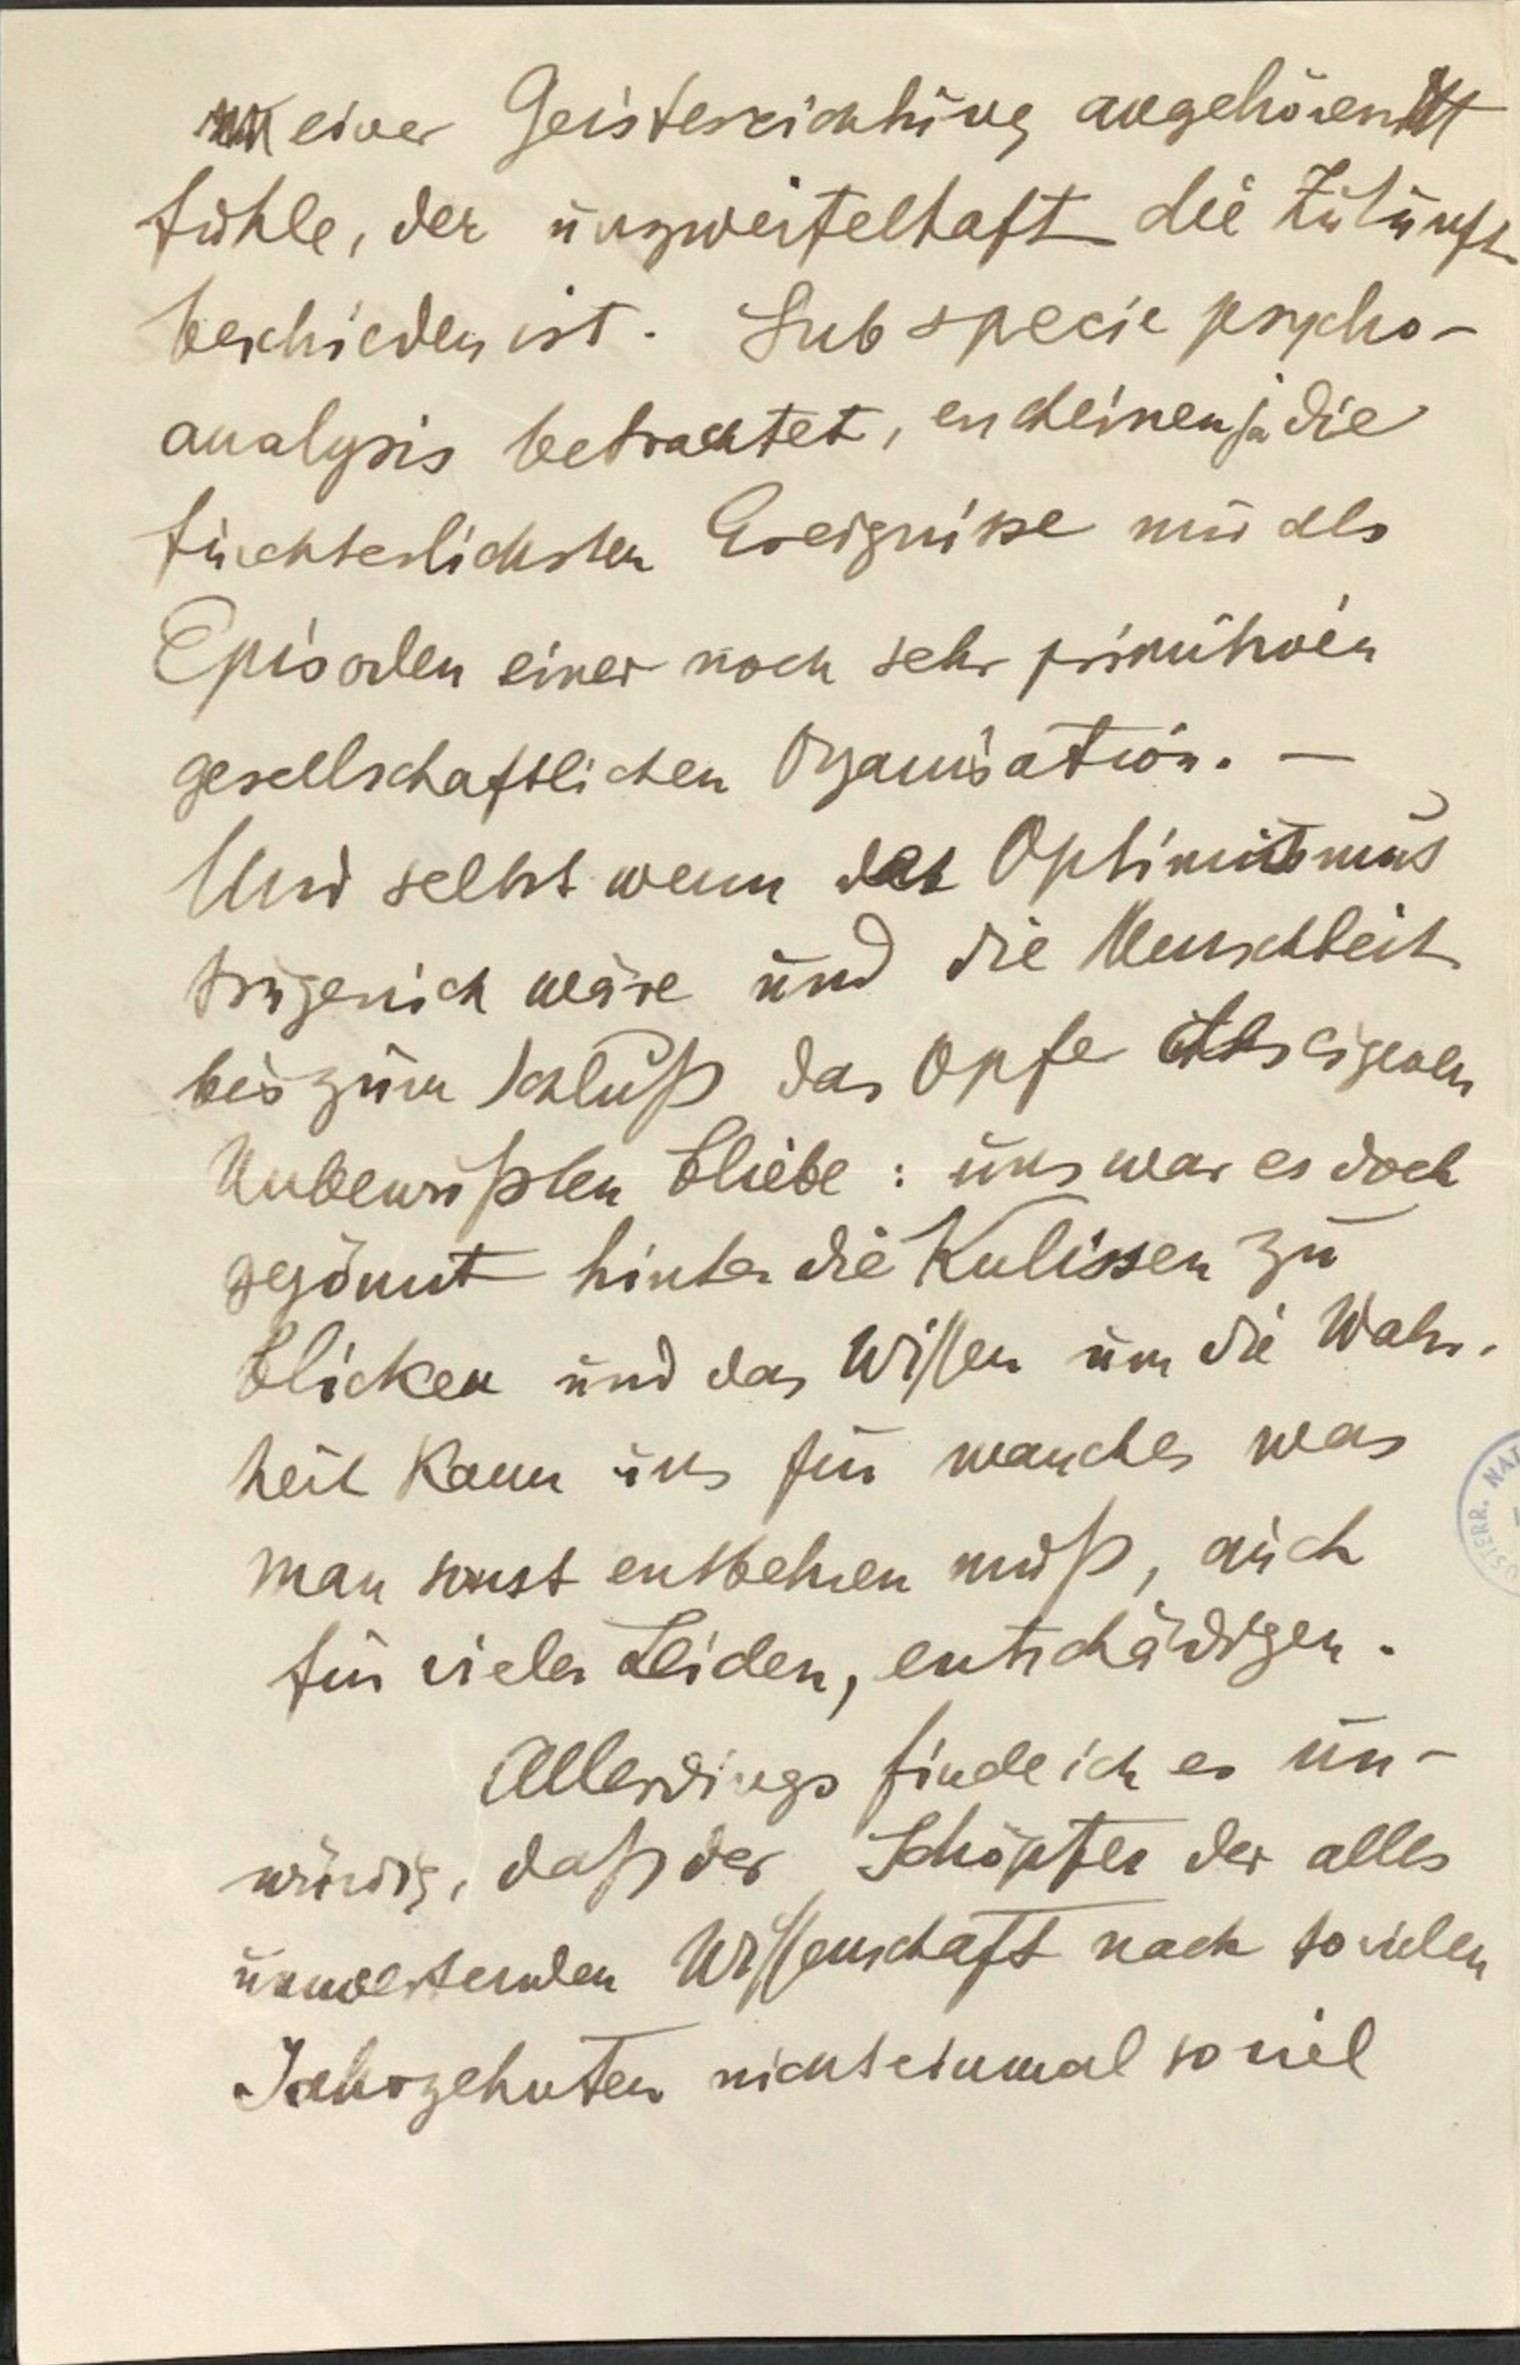 einer Geistesrichtung angehörend
fühle, der unzweifelhaft die Zukunft
beschieden ist. Sub specie psycho-
analysis betrachtet, erscheinen ja die
fürchterlichsten Ereignisse nur als
Episoden einer noch sehr primitiven
gesellschaftlichen Organisation. —
Und selbst wenn der Optimismus
trügerisch wäre und die Menschheit
bis zum Schluß das Opfer ihres eigenen
Unbewußten bliebe : uns war es doch
gegönnt hinter die Kulissen zu
blicken und das Wissen um die Wahr-
heit kann uns für manches was
man sonst entbehren muß, auch
für vieles Leiden, entschädigen.
Allerdings finde ich es un-
würdig, daß der Schöpfer der alles
umwertenden Wissenschaft nach so vielen
Jahrzehnten nicht einmal so viel
ÖSTERR. NAT